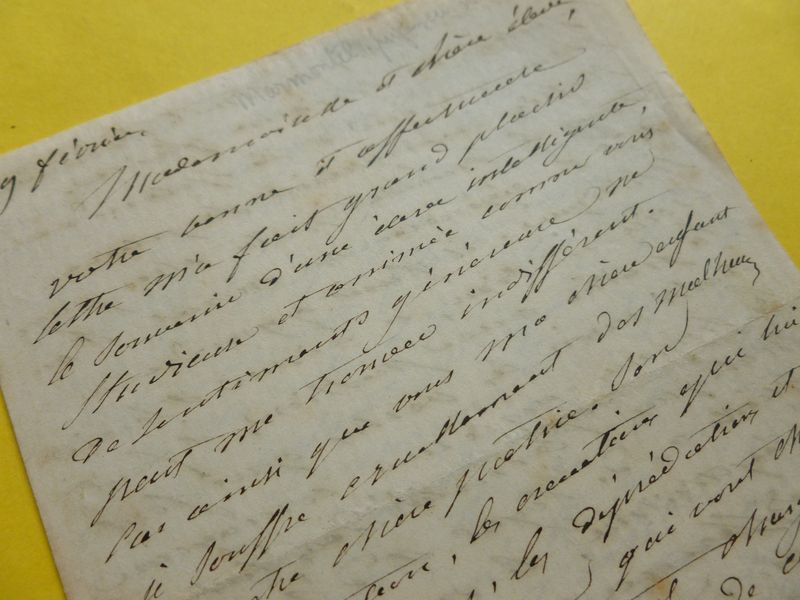 9 février,
Mademoiselle et chère élève,
votre bonne et affectueuse
lettre m'a fait grand plaisir
le souvenir d'une élève intelligente,
studieuse et animée comme vous
de sentiments généreux ne
peut me trouver indifférent.
Pas ainsi que vous ma chère enfant
je souffre cruellement des malheurs
chère patrie. Son
les exécutions qui lui
, les déprédations et
qui vont
de